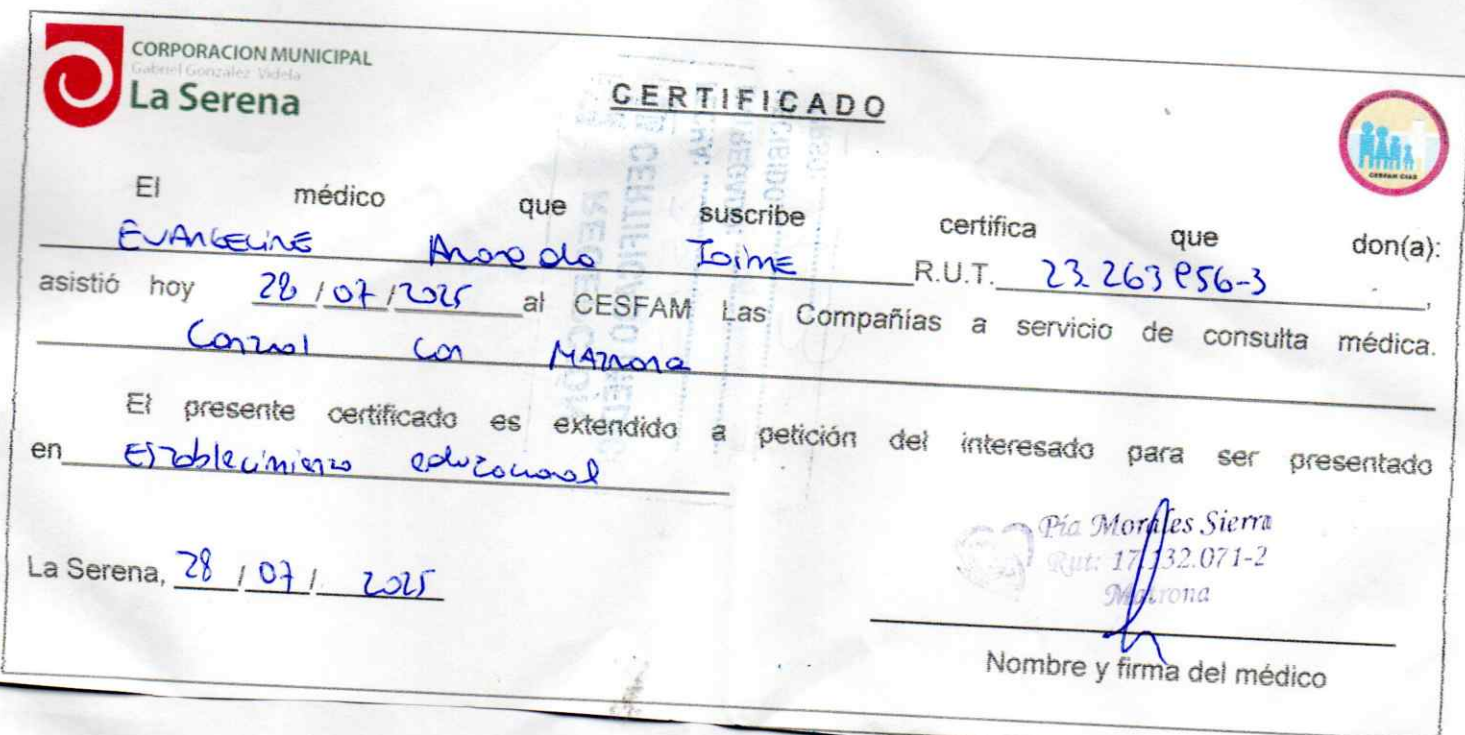 CORPORACION MUNICIPAL
Gabriel González Videla
La Serena
CERTIFICADO
CESFAM CIAS
El médico que suscribe certifica que don(a):
EVANGELINE Jaime R.U.T. 23.263 956-3,
asistió hoy 28/07/2025 al CESFAM Las Compañías a servicio de consulta médica.
Control con Matrona
El presente certificado es extendido a petición del interesado para ser presentado
en Establecimiento educacional
Pía Morales Sierra
Rut: 17.132.071-2
Matrona
La Serena, 28 / 07 / 2025
Nombre y firma del médico